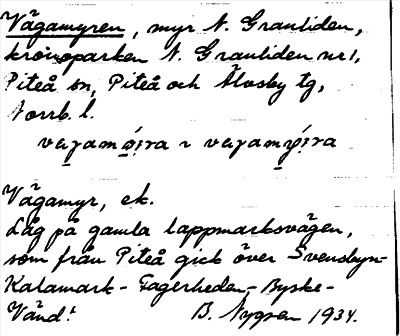 Vägamyren, myr N. Granliden,
kronoparken N. Granliden nr 1,
Piteå sn, Piteå och Älvsby tg,
Norrb. l.
Vägamyr, ek.
Låg på gamla lappmarksvägen,
som från Piteå gick över Svensbyn-
Kalamark - Fagerheden - Byske-
Vänd! B. Nygren 1934.